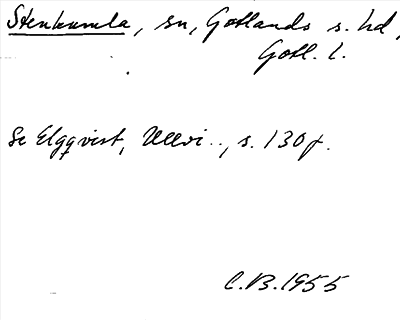 Stenkumla, sn, Gotlands s. hd,
Gotl. l.
Se Elgqvist, Ullvi.., s. 130 f.
C.B. 1955